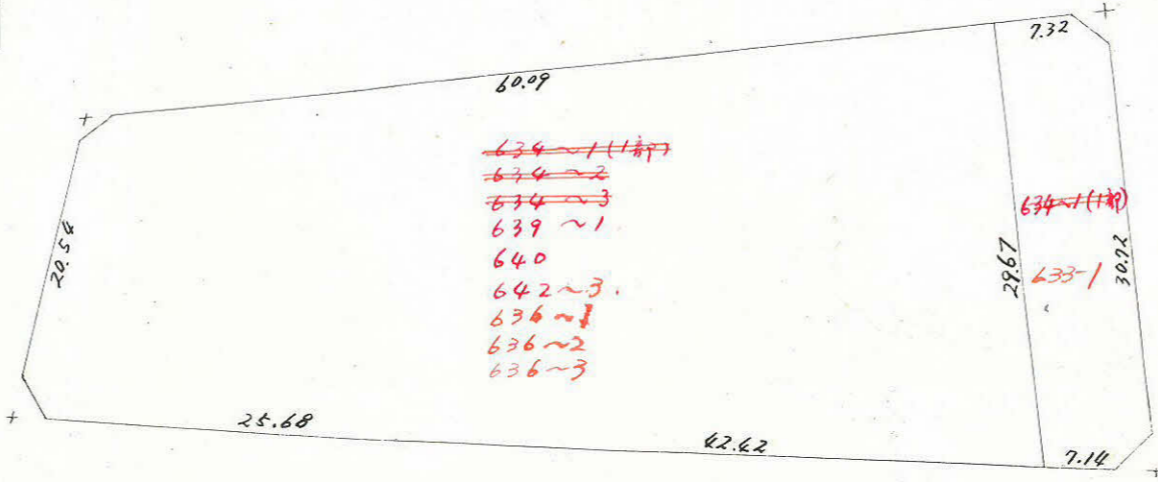 7.32
60.09
634~1(1部)
634~2
634~3
639~1
640
642~3.
636~1
636~2
636~3
20.54
29.67
634~1(1部)
633-1
30.92
25.68
42.42
7.14